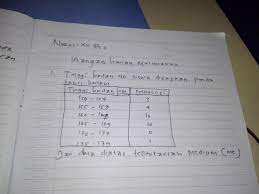 Ulangan harian Matematika
1. Tinggi badan 40 siswa disajikan pada
tabel berikut
Tinggi badan (cm) Frekuensi
150 - 154 3
155 - 159 4
160 - 164 16
165 - 169 10
170 - 174 6
175 - 179 1
Dari data diatas tentukanlah Medium (Me)